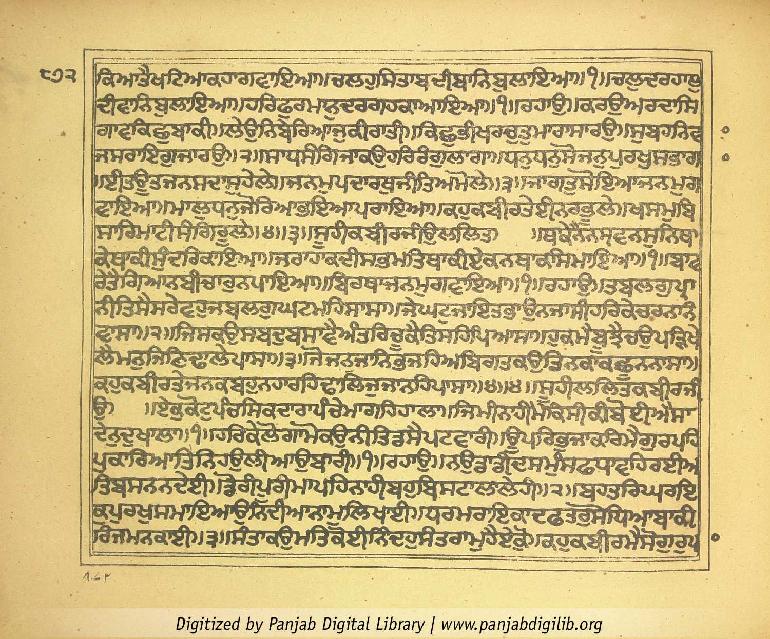 ੮੭੨
ਕਿਆਤੈਖਟਿਆਕਹਾਗਵਾਇਆ॥ਚਲਹੁਸਿਤਾਬਦੀਬਾਨਿਬੁਲਾਇਆ॥੧॥ਚਲੁਦਰਹਾਲੁ
ਦੀਵਾਨਿਬੁਲਾਇਆ॥ਹਰਿਫੁਰਮਾਨੁਦਰਗਹਕਾਆਇਆ॥੧॥ਰਹਾਉ॥ਕਰਉਅਰਦਾਸਿ
ਗਾਵਕਿਛੁਬਾਕੀ॥ਲੇਉਨਿਬੇਰਿਆਜੁਕੀਰਾਤੀ॥ਕਿਛੁਭੀਖਰਚੁਤੁਮਾਰਾਸਾਰਉ॥ਸੁਬਹਨਿਵਾ
ਜਸਰਾਇਗੁਜਾਰਉ॥੨॥ਸਾਧਸੰਗਿਜਾਕਉਹਰਿਰੰਗੁਲਾਗਾ॥ਧਨੁਧਨੁਸੋਜਨੁਪੁਰਖੁਸਭਾਗਾ
॥ਈਤਊਤਜਨਸਦਾਸੁਹੇਲੇ॥ਜਨਮੁਪਦਾਰਥੁਜੀਤਿਅਮੋਲੇ॥੩॥ਜਾਗਤੁਸੋਇਆਜਨਮੁਗ
ਵਾਇਆ॥ਮਾਲੁਧਨੁਜੋਰਿਆਭਇਆਪਰਾਇਆ॥ਕਹੁਕਬੀਰਤੇਈਨਰਭੂਲੇ॥ਖਸਮੁਬਿ
ਸਾਰਿਮਾਟੀਸੰਗਿਰੂਲੇ॥੪॥੩॥ਸੂਹੀਕਬੀਰਜੀਉਲਲਿਤ ॥ਥਾਕੇਨੈਨਸ੍ਰਵਨਸੁਨਿਥਾ
ਕੇਥਾਕੀਸੁੰਦਰਿਕਾਇਆ॥ਜਰਾਹਾਕਦੀਸਭਮਤਿਥਾਕੀਏਕਨਥਾਕਸਿਮਾਇਆ॥੧॥ਬਾਵ
ਰੇਤੈਗਿਆਨਬੀਚਾਰੁਨਪਾਇਆ॥ਬਿਰਥਾਜਨਮੁਗਵਾਇਆ॥੧॥ਰਹਾਉ॥ਤਬਲਗੁਪ੍ਰਾ
ਨੀਤਿਸੈਸਰੇਵਹੁਜਬਲਗੁਘਟਮਹਿਸਾਸਾ॥ਜੇਘਟੁਜਾਇਤਭਾਉਨਜਾਸੀਹਰਿਕੇਚਰਨਨਿ
ਵਾਸਾ॥੨॥ਜਿਸਕਉਸਬਦੁਬਸਾਵੈਅੰਤਰਿਚੂਕੈਤਿਸਹਿਪਿਆਸਾ॥ਹੁਕਮੈਬੂਝੈਚਉਪੜਿਖੇ
ਲੈਮਨੁਜਿਣਿਢਾਲੇਪਾਸਾ॥੩॥ਜੋਜਨਜਾਨਿਭਜਹਿਅਬਿਗਤਕਉਤਿਨਕਾਕਛੂਨਨਾਸਾ॥
ਕਹੁਕਬੀਰਤੇਜਨਕਬਹੁਨਹਾਰਹਿਢਾਲਿਜੁਜਾਨਹਿਪਾਸਾ॥੪॥੪॥ਸੂਹੀਲਲਿਤਕਬੀਰਜੀ
ਉ ॥ਏਕੁਕੋਟੁਪੰਚਸਿਕਦਾਰਾਪੰਚੇਮਾਗਹਿਹਾਲਾ॥ਜਿਮੀਨਾਹੀਮੈਕਿਸੀਕੀਬੋਈਐਸਾ
ਦੇਨੁਦੁਖਾਲਾ॥੧॥ਹਰਿਕੇਲੋਗਾਮੋਕਉਨੀਤਿਡਸੈਪਟਵਾਰੀ॥ਊਪਰਿਭੁਜਾਕਰਿਮੈਗੁਰਪਹਿ
ਪੁਕਾਰਿਆਤਿਨਿਹਉਲੀਆਉਬਾਰੀ॥੧॥ਰਹਾਉ॥ਨਉਡਾਡੀਦਸਮੁੰਸਫਧਾਵਹਿਰਈਅ
ਤਿਬਸਨਨਦੇਹੀ॥ਡੋਰੀਪੂਰੀਮਾਪਹਿਨਾਹੀਬਹੁਬਿਸਟਾਲਾਲੇਹੀ॥੨॥ਬਹਤਰਿਘਰਇ
ਕੁਪੁਰਖੁਸਮਾਇਆਉਨਿਦੀਆਨਾਮੁਲਿਖਾਈ॥ਧਰਮਰਾਇਕਾਦਫਤਰੁਸੋਧਿਆਬਾਕੀ
ਰਿਜਮਨਕਾਈ॥੩॥ਸੰਤਾਕਉਮਤਿਕੋਈਨਿੰਦਹੁਸੰਤਰਾਮੁਹੈਏਕੋੁ॥ਕਹੁਕਬੀਰਮੈਸੋਗੁਰੁਪ
Digitized by Panjab Digital Library | www.panjabdigilib.org